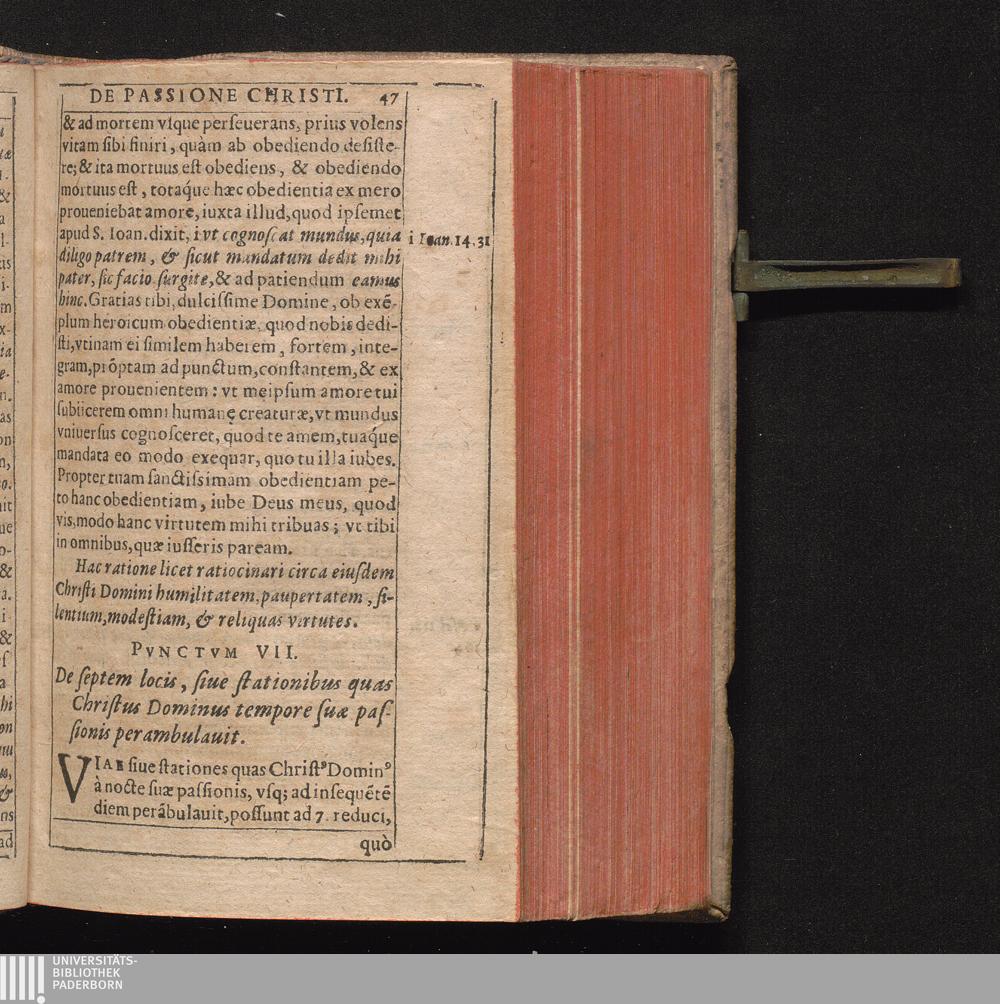 DE PASSIONE CHRISTI. 47
& ad mortem vſque perſeuerans, prius volens
vitam ſibi finiri, quàm ab obediendo deſiſte-
re; & ita mortuus eſt obediens, & obediendo
mortuus eſt, totáque hæc obedientia ex mero
proueniebat amore, iuxta illud, quod ipſemet
apud S. Ioan. dixit, i vt cognoſcat mundus, quia
i Ioan. 14. 31
diligo patrem, & ſicut mandatum dedit mihi
pater, ſic facio ſurgite, & ad patiendum eamus
hinc. Gratias tibi, dulciſſime Domine, ob exē-
plum heroicum obedientiæ, quod nobis dedi-
ſti, vtinam ei ſimilem haberem, fortem, inte-
gram, prōptam ad punctum, conſtantem, & ex
amore prouenientem: vt meipſum amore tui
ſubiicerem omni humanę creaturæ, vt mundus
vniuerſus cognoſceret, quod te amem, tuáque
mandata eo modo exequar, quo tu illa iubes.
Propter tuam ſanctiſſimam obedientiam pe-
to hanc obedientiam, iube Deus meus, quod
vis, modo hanc virtutem mihi tribuas; vt tibi
in omnibus, quæ iuſſeris paream.
Hac ratione licet ratiocinari circa eiuſdem
Chriſti Domini humilitatem, paupertatem, ſi-
lentium, modeſtiam, & reliquas virtutes.
PVNCTVM VII.
De ſeptem locis, ſiue ſtationibus quas
Chriſtus Dominus tempore ſuæ paſ-
ſionis perambulauit.
VIAE ſiue ſtationes quas Chriſtꝰ Dominꝰ
à nocte ſuæ paſſionis, vſq; ad inſequētē
diem perābulauit, poſſunt ad 7. reduci,
quò
UNIVERSITÄTS-
BIBLIOTHEK
PADERBORN